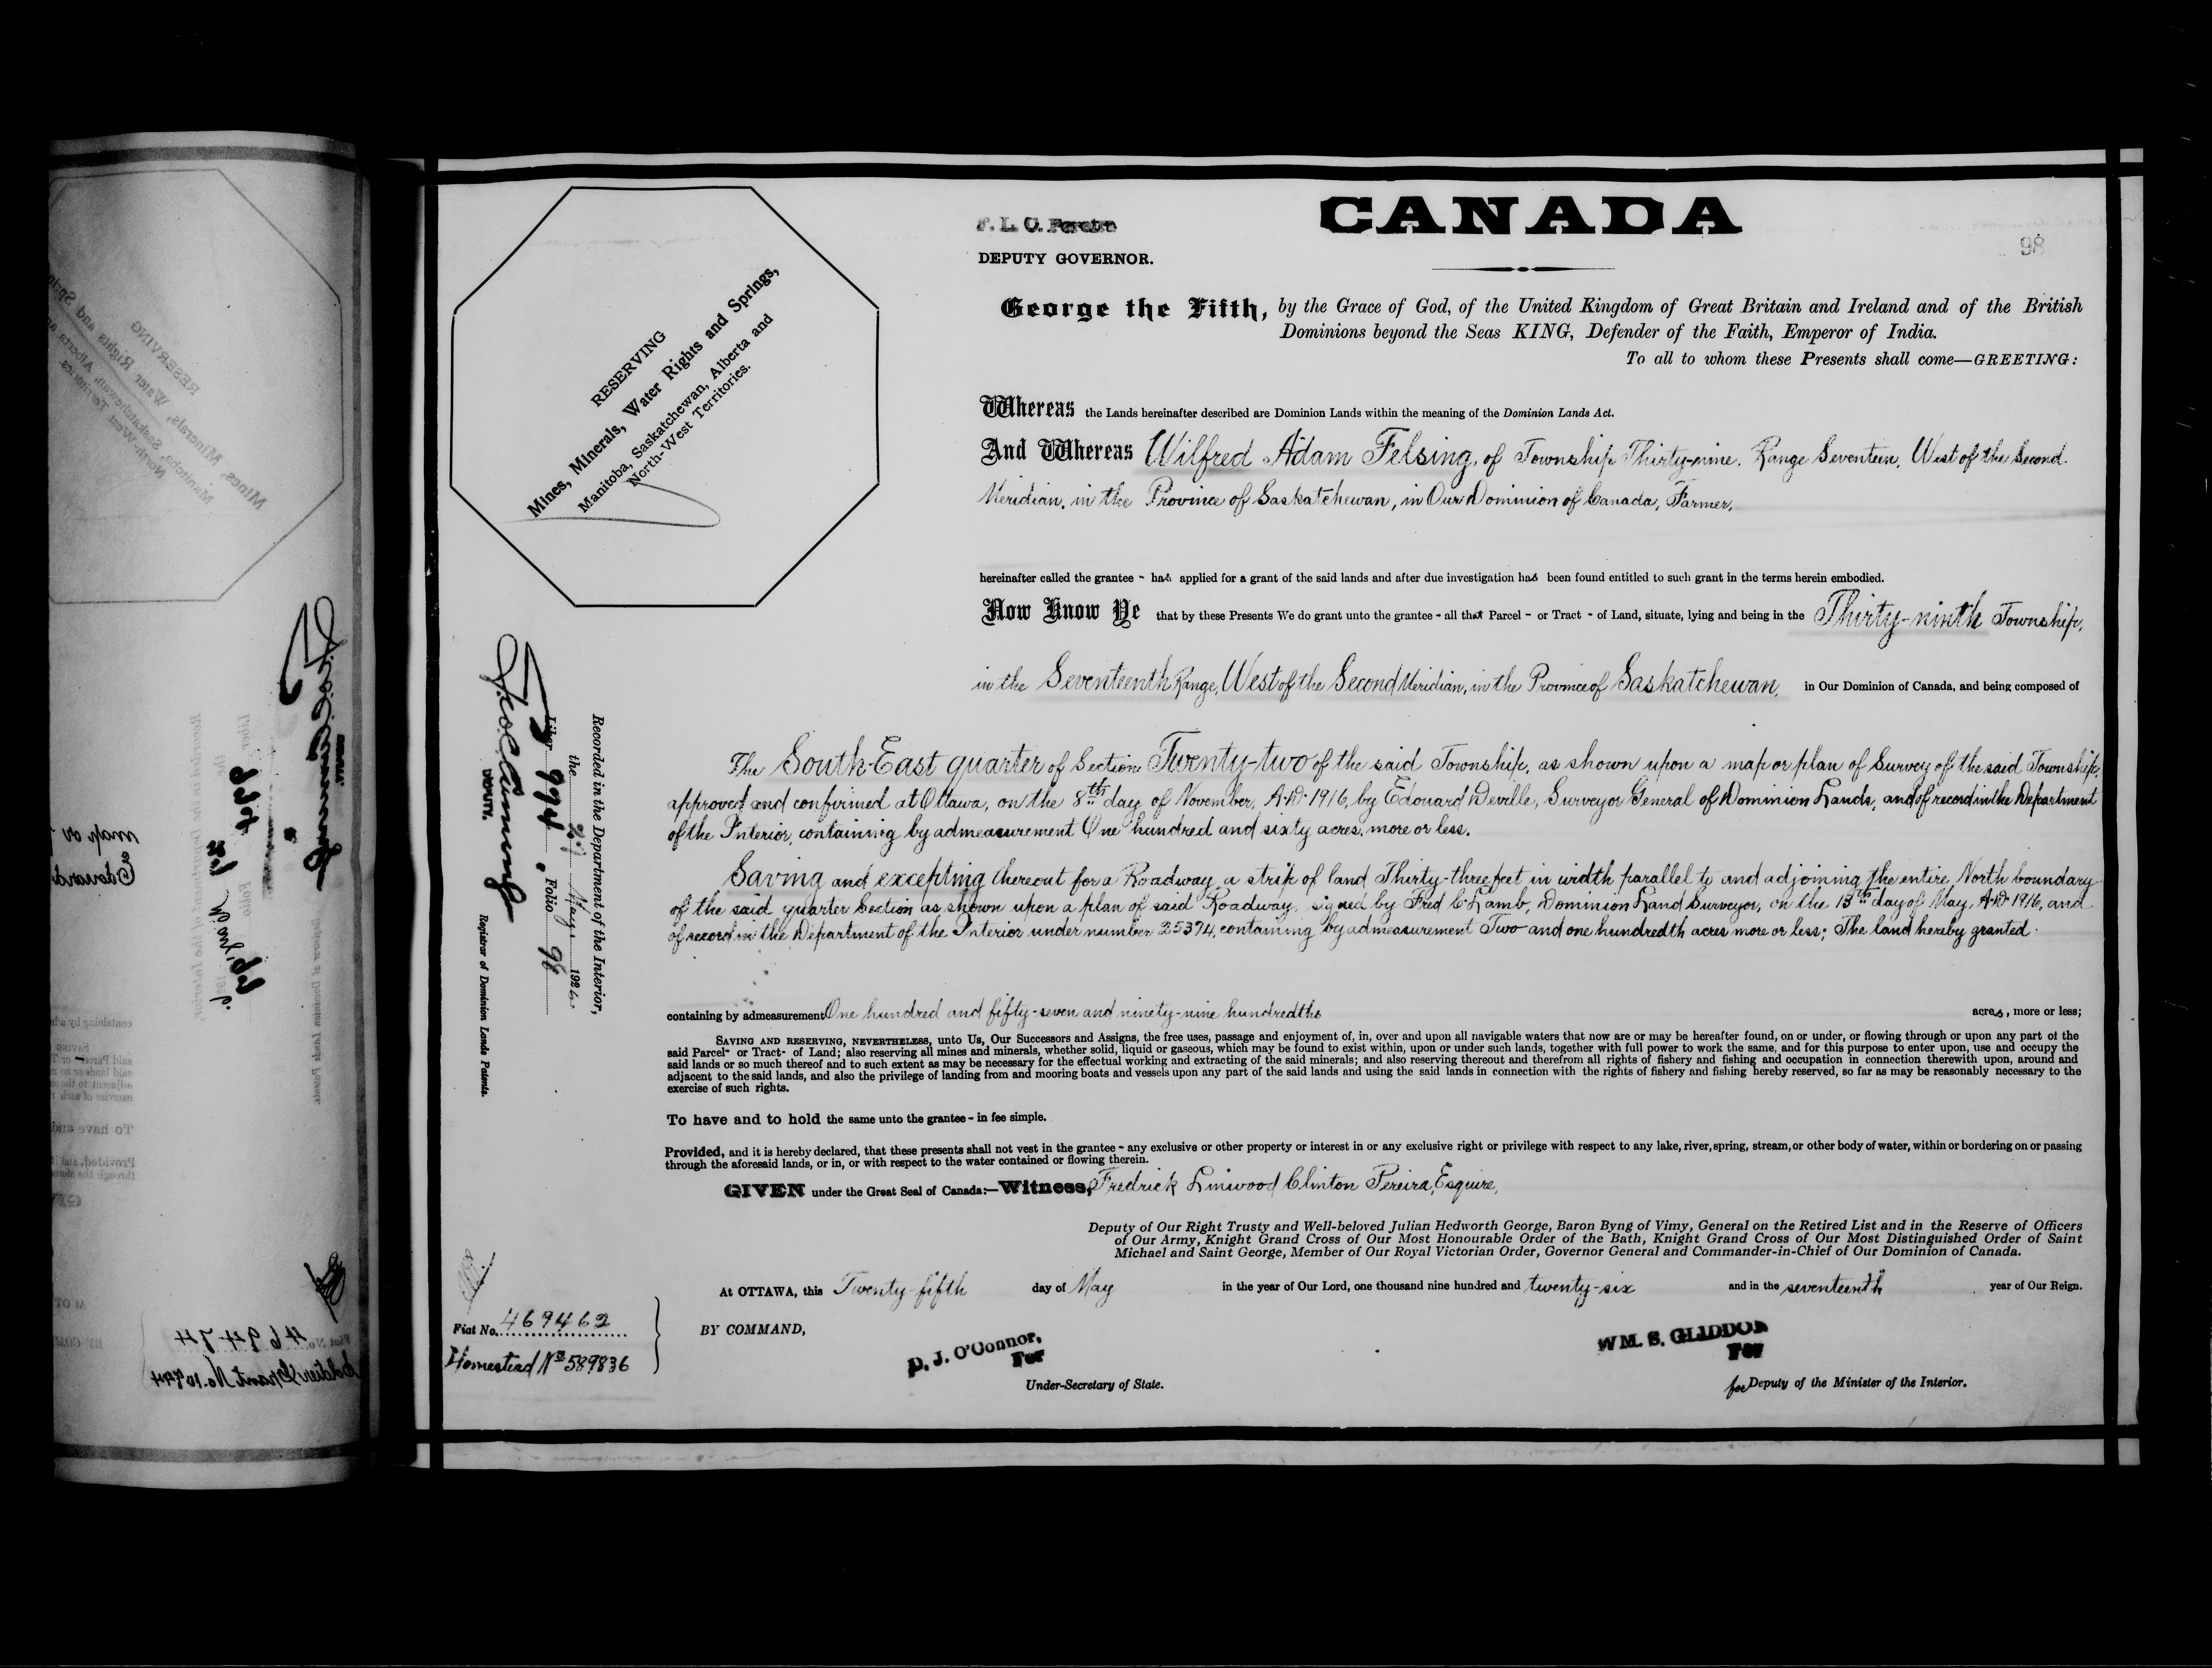 CANADA
F. L. C. Pereira
DEPUTY GOVERNOR.
98
RESERVING
Mines, Minerals, Water Rights and Springs,
Manitoba, Saskatchewan, Alberta and
North-West Territories.
George the Fifth, by the Grace of God, of the United Kingdom of Great Britain and Ireland and of the British
Dominions beyond the Seas KING, Defender of the Faith, Emperor of India.
To all to whom these Presents shall come—GREETING:
Whereas the Lands hereinafter described are Dominion Lands within the meaning of the Dominion Lands Act.
And Whereas Wilfred Adam Felsing, of Township Thirty-nine, Range Seventeen, West of the Second
Meridian, in the Province of Saskatchewan, in Our Dominion of Canada, Farmer,
hereinafter called the grantee - has applied for a grant of the said lands and after due investigation has been found entitled to such grant in the terms herein embodied.
Now Know Ye that by these Presents We do grant unto the grantee - all that Parcel - or Tract - of Land, situate, lying and being in the Thirty-ninth Township,
in the Seventeenth Range, West of the Second Meridian, in the Province of Saskatchewan, in Our Dominion of Canada, and being composed of
The South-East quarter of Section Twenty-two of the said Township, as shown upon a map or plan of Survey of the said Township,
approved and confirmed at Ottawa, on the 8th day of November, A.D. 1916, by Edouard Deville, Surveyor General of Dominion Lands, and of record in the Department
of the Interior, containing by admeasurement One hundred and sixty acres, more or less.
Saving and excepting thereout for a Roadway, a strip of land Thirty-three feet in width parallel to and adjoining the entire North boundary
of the said quarter Section as shown upon a plan of said Roadway, signed by Fred C. Lamb, Dominion Land Surveyor, on the 13th day of May, A.D. 1916, and
of record in the Department of the Interior under number 25374, containing by admeasurement Two and one hundredth acres more or less; The land hereby granted
containing by admeasurement One hundred and fifty-seven and ninety-nine hundredths acres, more or less;
SAVING AND RESERVING, NEVERTHELESS, unto Us, Our Successors and Assigns, the free uses, passage and enjoyment of, in, over and upon all navigable waters that now are or may be hereafter found, on or under, or flowing through or upon any part of the
said Parcel- or Tract- of Land; also reserving all mines and minerals, whether solid, liquid or gaseous, which may be found to exist within, upon or under such lands, together with full power to work the same, and for this purpose to enter upon, use and occupy the
said lands or so much thereof and to such extent as may be necessary for the effectual working and extracting of the said minerals; and also reserving thereout and therefrom all rights of fishery and fishing and occupation in connection therewith upon, around and
adjacent to the said lands, and also the privilege of landing from and mooring boats and vessels upon any part of the said lands and using the said lands in connection with the rights of fishery and fishing hereby reserved, so far as may be reasonably necessary to the
exercise of such rights.
To have and to hold the same unto the grantee - in fee simple.
Provided, and it is hereby declared, that these presents shall not vest in the grantee - any exclusive or other property or interest in or any exclusive right or privilege with respect to any lake, river, spring, stream, or other body of water, within or bordering on or passing
through the aforesaid lands, or in, or with respect to the water contained or flowing therein.
GIVEN under the Great Seal of Canada:—Witness, Fredrick Linwood Clinton Pereira, Esquire,
Deputy of Our Right Trusty and Well-beloved Julian Hedworth George, Baron Byng of Vimy, General on the Retired List and in the Reserve of Officers
of Our Army, Knight Grand Cross of Our Most Honourable Order of the Bath, Knight Grand Cross of Our Most Distinguished Order of Saint
Michael and Saint George, Member of Our Royal Victorian Order, Governor General and Commander-in-Chief of Our Dominion of Canada.
At OTTAWA, this Twenty-fifth day of May in the year of Our Lord, one thousand nine hundred and twenty-six and in the seventeenth year of Our Reign.
BY COMMAND,
D. J. O'Connor,
For
Under-Secretary of State.
WM. S. GLIDDON
For
for Deputy of the Minister of the Interior.
Fiat No. 469462
Homestead No 589836
Recorded in the Department of the Interior,
the 27 May 1926
Liber 994 Folio 98
DEPUTY.
Registrar of Dominion Lands Patents.
Fiat No. 469474
Soldier Grant No.